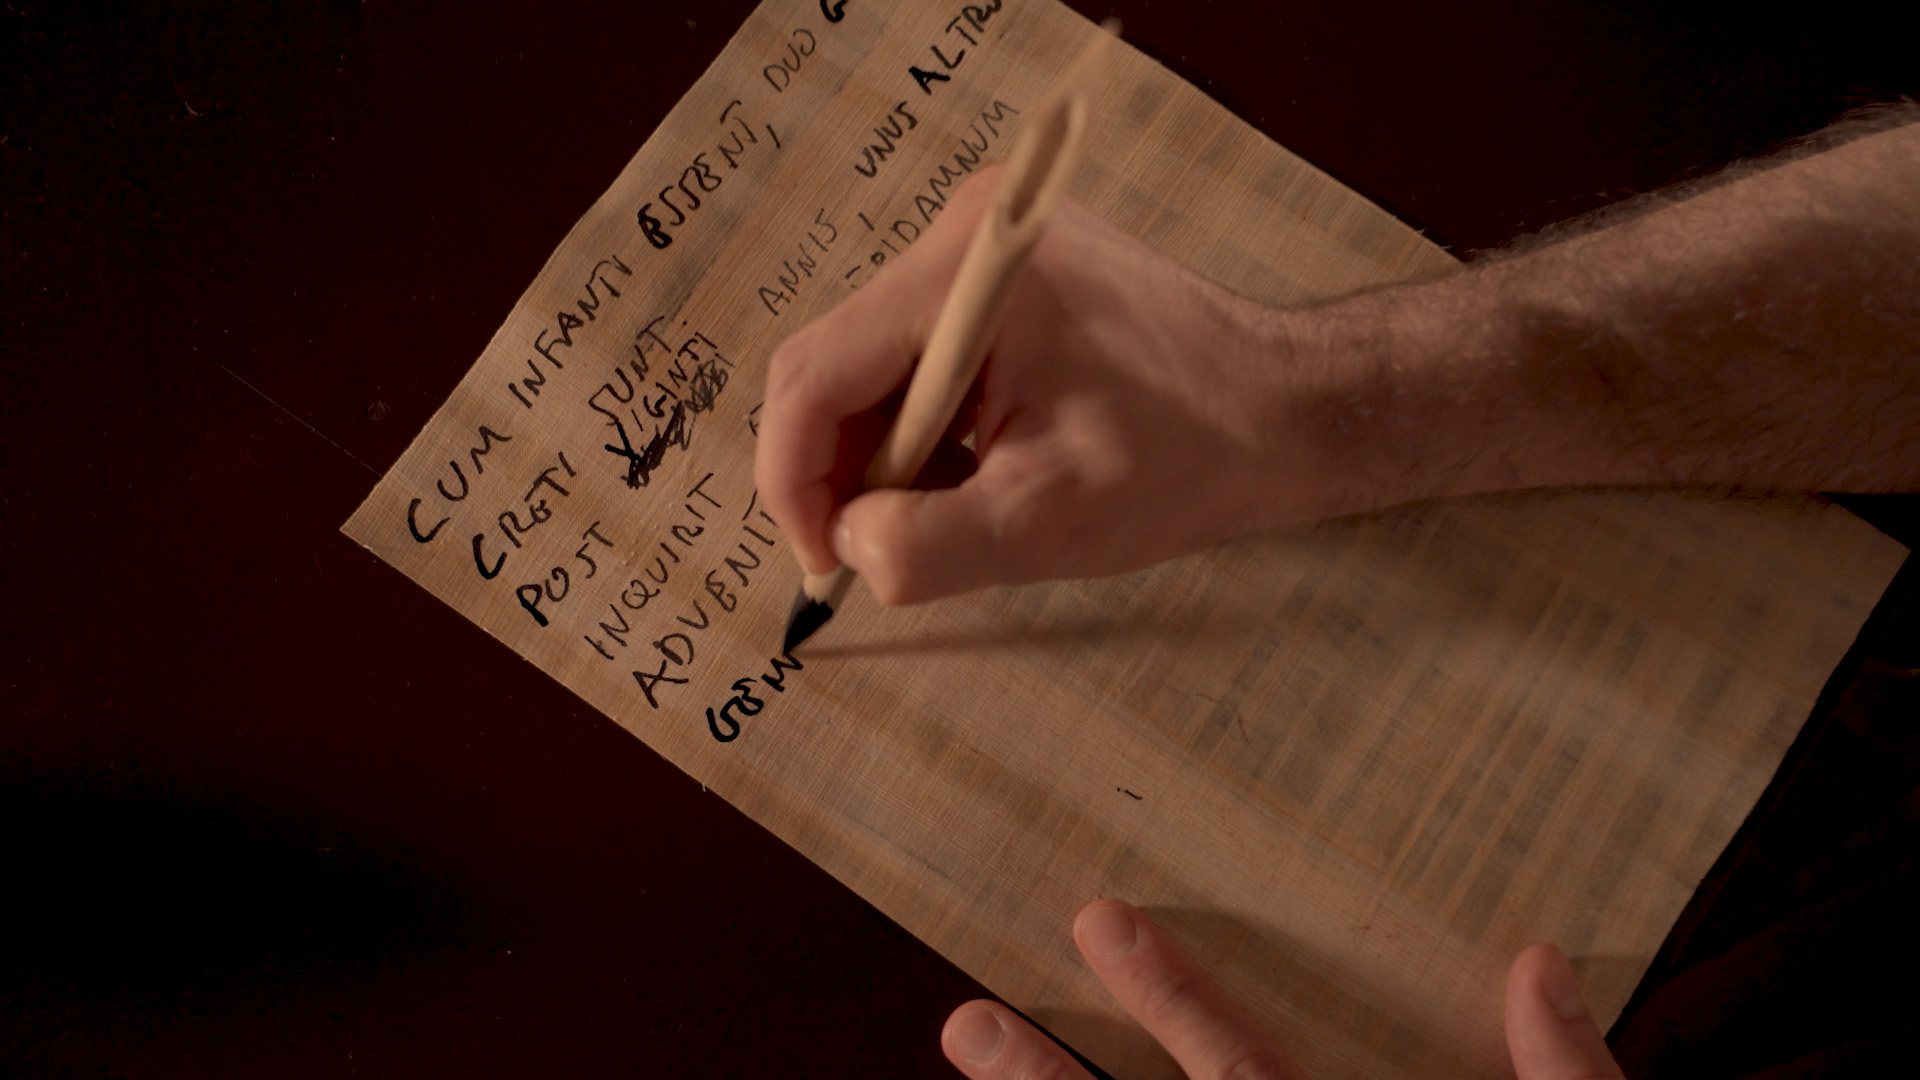 CUM INFANTI ESSENT, DUO G
CRETI SUNT
VIGINTI
POST ANNIS UNUS ALTRU
INQUIRIT EPIDAMNUM
ADVENIT
GEM